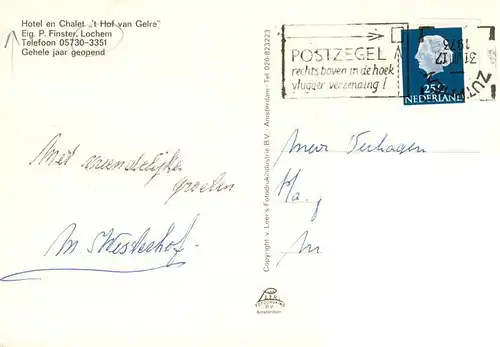 Hotel en Chalet "'t Hof van Gelre"
Eig. P. Finster, Lochem
Telefoon 05730-3351
Gehele jaar geopend
POSTZEGEL
rechts boven in de hoek
vlugger verzending!
31 VII 17
1973
ZUTPHEN
25c
NEDERLAND
Met vriendelijke
groeten
M. Westerhof.
Mevr Verhagen
Copyright v. Leer's Fotodrukindustrie B.V. Amsterdam-Tel 020-823223
LEER
FOTODRUKIND.
B.V.
Amsterdam